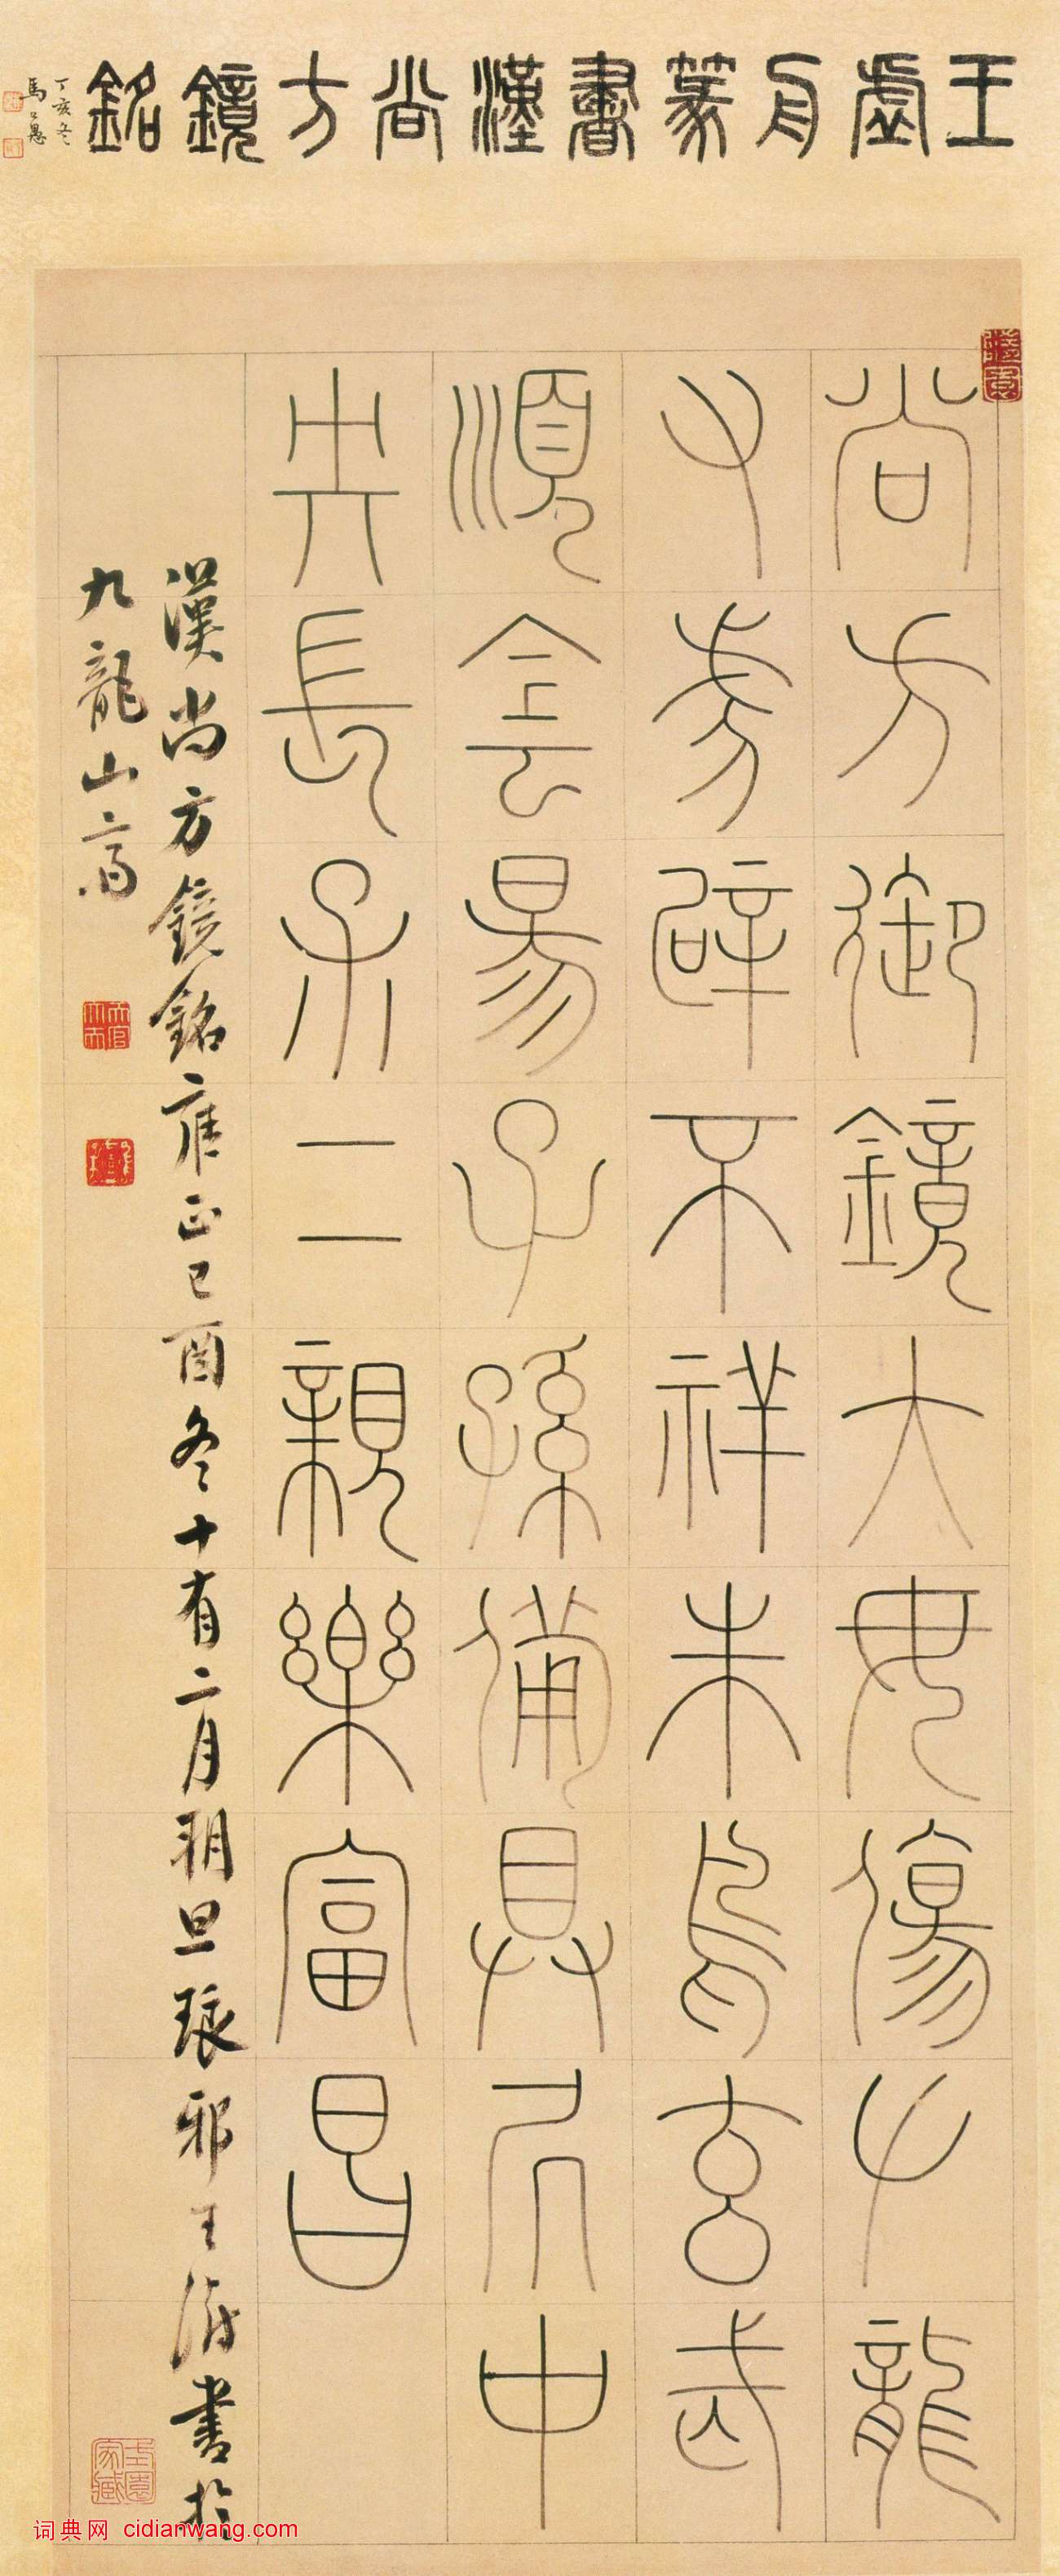 王虛舟篆書漢尚方鏡銘
丁亥冬
馬公愚
尚方御鏡大毋傷𠂇龍
又虎辟不祥朱鳥玄武
順侌昜子孫備具凥中
央長保二親樂富昌
漢尚方鏡銘雍正己酉冬十有二月朔旦琅邪王澍書於
九龍山齋
词典网 cidianwang.com